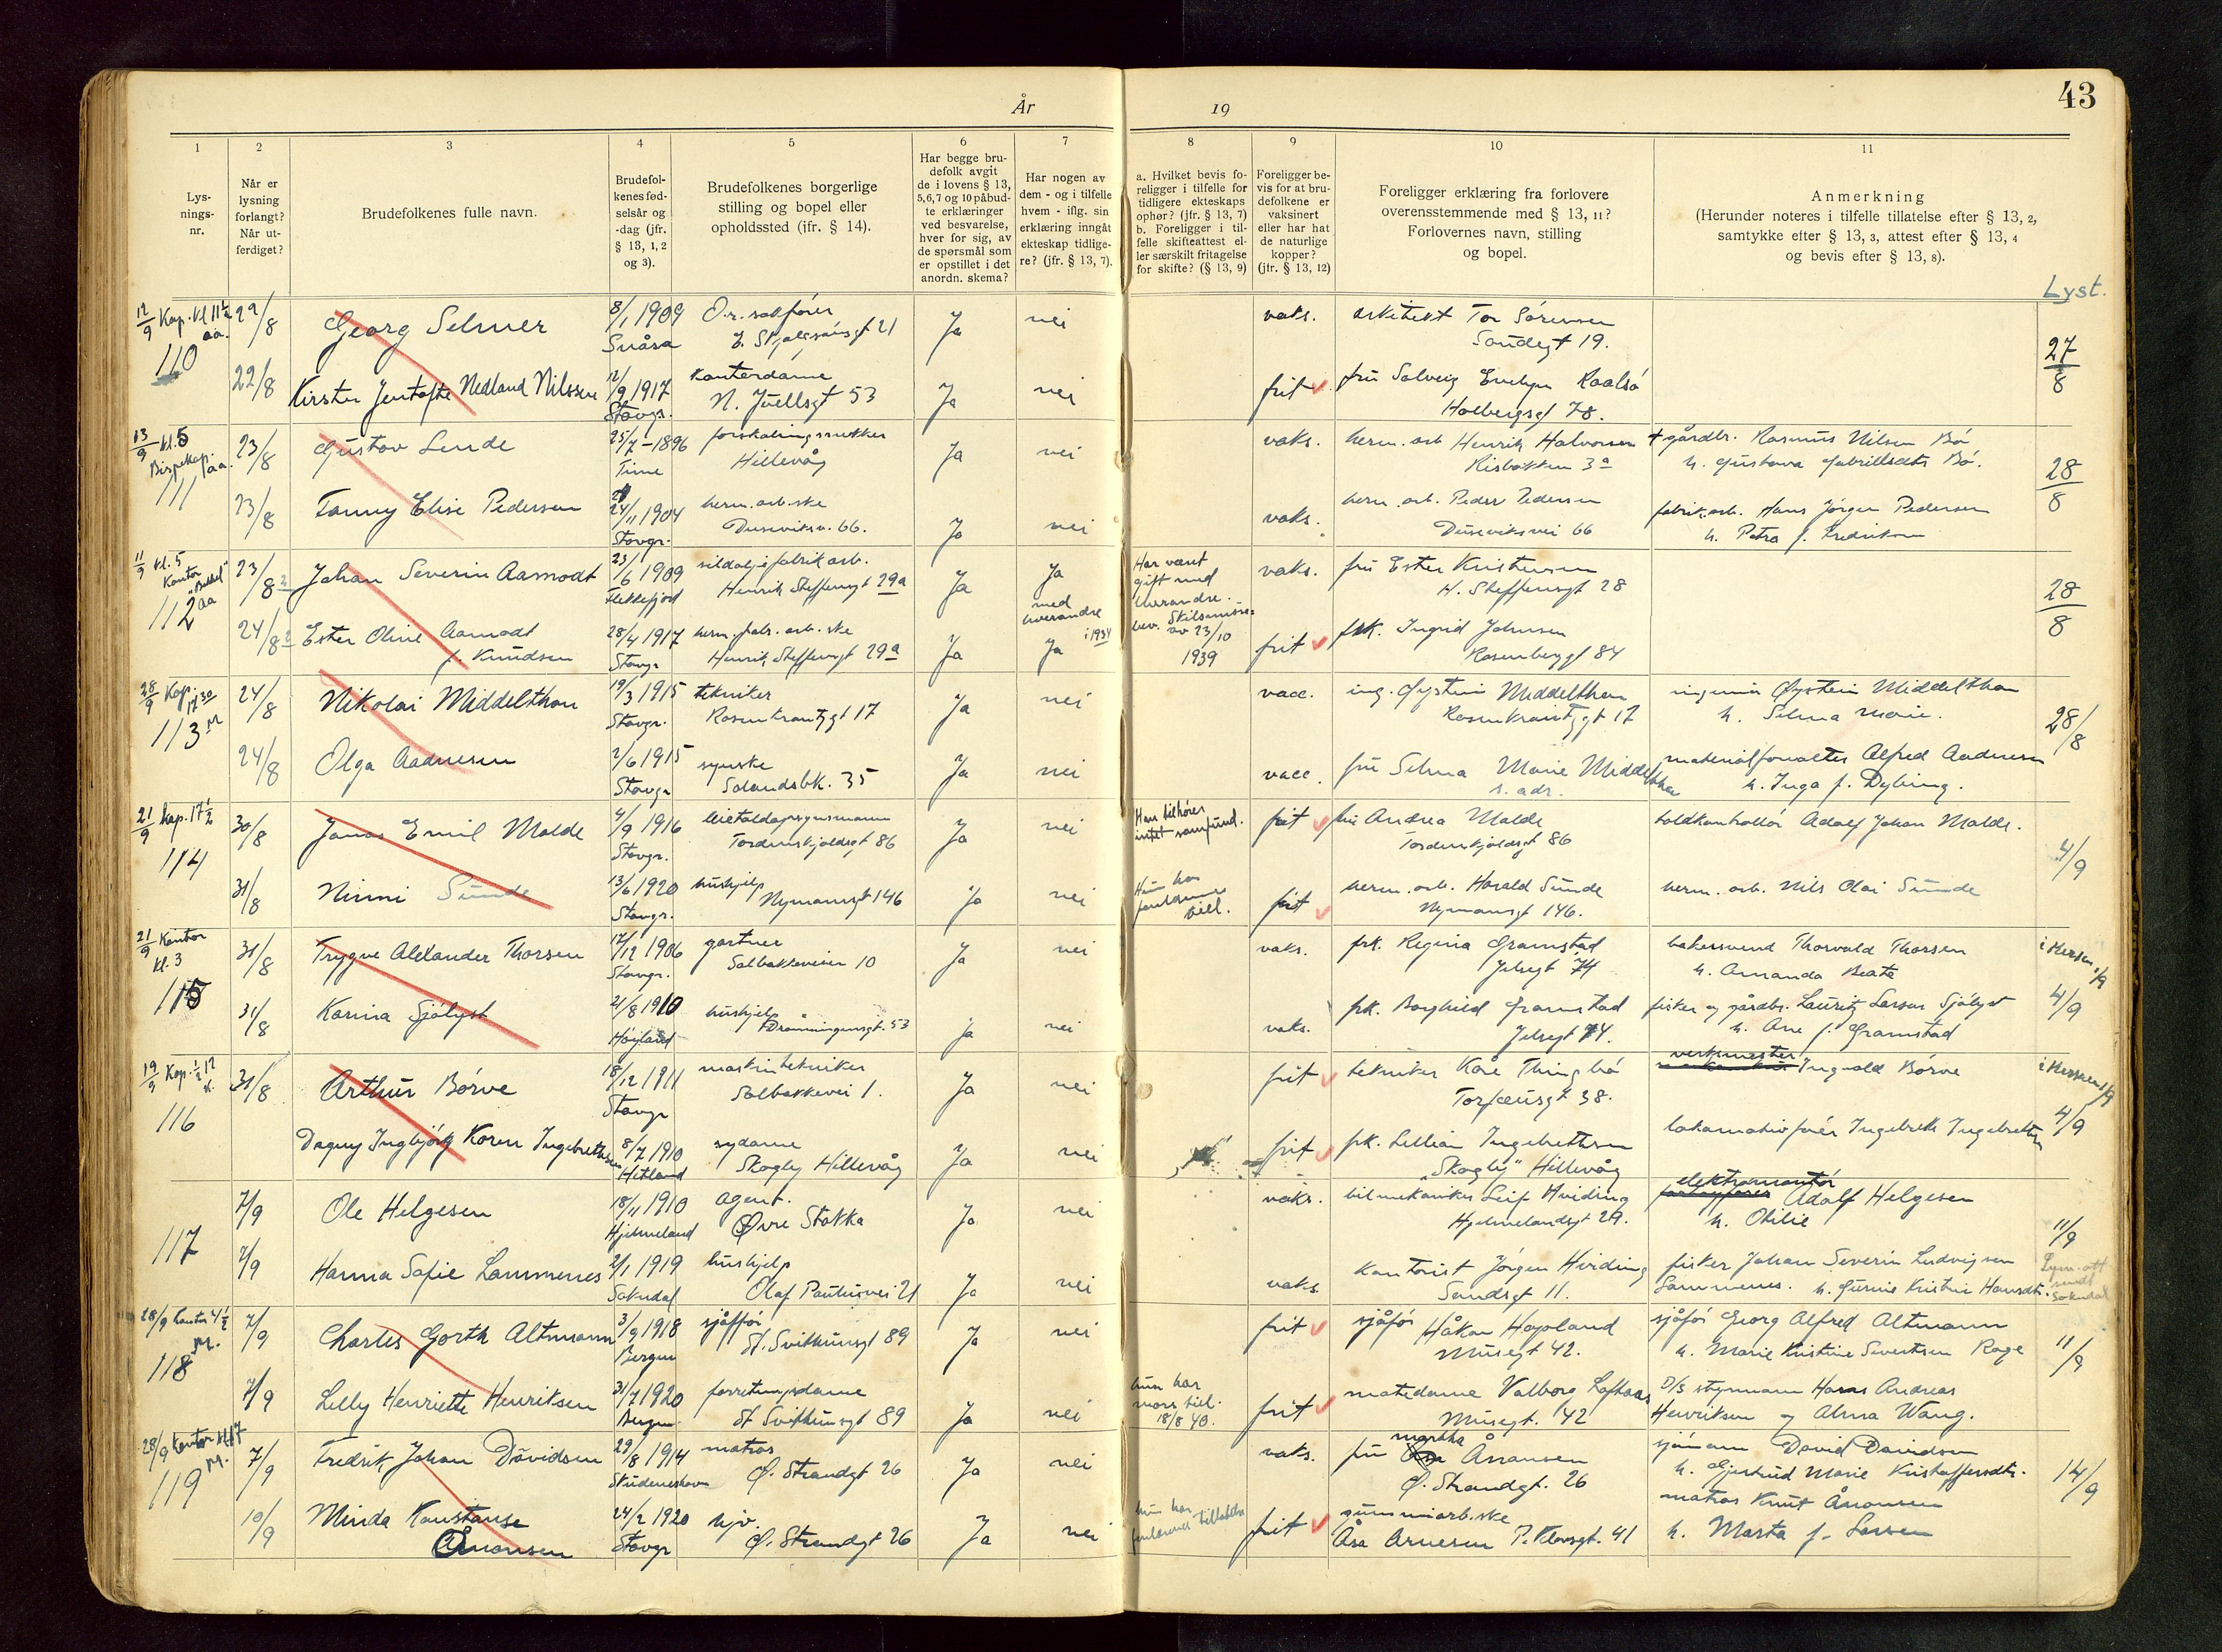 År 19
43
1 2 3 4 5 6 7 8 9 10 11
Lys-
nings-
nr.
Når er
lysning
forlangt?
Når ut-
ferdiget?
Brudefolkenes fulle navn.
Brudefol-
kenes fød-
selsår og
-dag (jfr.
§ 13, 1, 2
og 3).
Brudefolkenes borgerlige
stilling og bopel eller
opholdssted (jfr. § 14).
Har begge bru-
defolk avgit
de i lovens § 13,
5, 6, 7 og 10 påbud-
te erklæringer
ved besvarelse,
hver for sig, av
de spørsmål som
er opstillet i det
anordn. skema?
Har nogen av
dem - og i tilfelle
hvem - iflg. sin
erklæring inngåt
ekteskap tidlige-
re? (jfr. § 13, 7).
a. Hvilket bevis fo-
religger i tilfelle for
tidligere ekteskaps
ophør? (jfr. § 13, 7)
b. Foreligger i til-
felle skifteattest el-
ler særskilt fritagelse
for skifte? (§ 13, 9)
Foreligger be-
vis for at bru-
defolkene er
vaksinert
eller har hat
de naturlige
kopper?
(jfr. § 13, 12)
Foreligger erklæring fra forlovere
overensstemmende med § 13, 11?
Forlovernes navn, stilling
og bopel.
Anmerkning
(Herunder noteres i tilfelle tillatelse efter § 13, 2,
samtykke efter § 13, 3, attest efter § 13, 4
og bevis efter § 13, 8).
Lyst.
12/9 Kap. kl 11½ aa.
110
29/8 Georg Selmer 8/1 1909 O.r. sakfører Ja nei vaks. arkitekt Tor Sørensen
Snåsa 21 Sandegt 19.
27/8
22/8 Kirsten Jentofte Nedland Nilssen 12/9 1917 kontordame Ja nei frit fru Solveig Evelyn
Stavgr. N. Juellsgt 53 Holbergsgt 78.
13/9 kl. 5
Bispekap. aa.
111
23/8 Gustav Lende 25/7-1896 Ja nei vaks. herm. arb Henrik Halvorsen + gårdbr. Rasmus Nilsen Bø
Time Hillevåg Risbakken 3a h. Gustava Bø.
28/8
23/8 Fanny Elise Pedersen 24/11 1904 herm. arb.ske Ja nei vaks. herm. arb. Peder Pedersen fabrik.arb. Hans Jørgen Pedersen
Stavgr. Duseviksv. 66. Dusevikvei 66 h. Petra f. Fredriksen
11/9 kl. 5
Kontor
aa
112
23/8 Johan Severin Aamodt 23/6 1909 sildoljefabrik arb. Ja Ja Har vært vaks. fru Ester Kristensen
Flekkefjord Henrik Steffensgt 29a med gift med H. Steffensgt 28
hverandre hverandre.
28/8
24/8 Ester Oline Aamodt 28/4 1917 herm. fabr. arb.ske Ja Ja i 1934 bev. Skilsmisse= frit frk. Ingrid Johnsen
f. Knudsen Stavgr Henrik Steffensgt 29a av 23/10 1939 Rosenberggt 84
28/9 Kap. 17 30 M
113
24/8 Nikolai Middelthon 19/3 1915 tekniker Ja nei vacc. ing. Øystein Middelthon ingeniør Øystein Middelthon
Stavgr. Rosenkrantzgt 17 Rosenkrantzgt 17 h. Selma Marie.
28/8
24/8 Olga Aadnesen 2/6 1915 syerske Ja nei vacc. fru Selma Marie Middelthon materialforvalter Alfred Aadnesen
Stavgr Solandsbk. 35 s. adr. h. Inga f. Dybing.
21/9 Kap. 17½
114
30/8 Jonas Emil Molde 4/9 1916 Ja nei Han tilhører frit fru Andrea Molde toldkontrollør Adolf Johan Molde.
Stavgr. Tordenskjoldsgt 86 intet samfund. Tordenskjoldsgt 86
4/9
31/8 Ninni Sunde 13/6 1920 hushjelp Ja nei Hun har frit herm. arb. Harald Sunde herm. arb. Nils Olai Sunde
Stavgr. Nymansgt 146 till. Nymansgt 146.
21/9 Kontor
kl. 3
115
31/8 Trygve Alexander Thorsen 17/12 1906 gartner Ja nei vaks. frk. Regina Gramstad bakersvend Thorvald Thorsen
Stavgr. Solbakkeveien 10 Jelsegt 74 h. Amanda Beate
4/9
31/8 Karina Sjølyst 21/8 1910 hushjelp Ja nei vaks. frk. Borghild Gramstad fisker og gårdbr. Lauritz Larsen Sjølyst
Høyland Dronningensgt. 53 Jelsegt 74. h. Ane f. Gramstad
19/9 Kap. ½ 12
116
31/8 Arthur Børve 18/12 1911 maskintekniker Ja nei frit tekniker Kåre Thingbø verksmester Ingvald Børve
Stavgr Solbakkevei 1. Torfæusgt 38.
4/9
Dagny Ingbjørg Koren Ingebrethsen 8/7 1910 sydame Ja nei frit frk. Lillian Ingebrethsen lokomotivfører Ingebrethsen
Hetland Skogly Hillevåg "Skogly" Hillevåg
117
7/9 Ole Helgesen 18/11 1910 agent. Ja nei vaks. bilmekaniker Leif Hviding elektromontør Adolf Helgesen
Hjelmeland Øvre Stokka Hjelmelandsgt 29. h. Otilie
11/9
7/9 Hanna Sofie Lammenes 21/1 1919 hushjelp Ja nei vaks. kontorist Jørgen Hviding fisker Johan Severin Ludvigsen
Sokndal Olaf Paulusvei 21 Sandsgt 11. Lammenes. h. Gurine Kristine Hansdtr.
28/9 kontor 4½
M.
118
7/9 Charles Gorth Altmann 3/9 1918 sjåfør Ja nei frit sjåfør Håkon Hopland sjåfør Georg Alfred Altmann
Bergen St. Svithunsgt 89 Musegt 42. h. Marie Kristine Sivertsen Roge
11/9
7/9 Lilly Henriette Henriksen 31/7 1920 forretningsdame Ja nei hun har frit motedame Valborg D/S styrmann Hans Andreas
Bergen St Svithunsgt 89 mors till. 18/8 40. Musegt. 42 Henriksen og Alma Wang.
28/9 Kontor kl 17
M.
119
7/9 Fredrik Johan Davidsen 29/8 1914 matros Ja nei vaks. fru Martha Ånonsen sjømann David Davidsen
Skudeneshavn Ø. Strandgt 26 Ø. Strandgt. 26 h. Gjertrud Marie Kristoffersdtr.
14/9
10/9 Minda Konstanse 24/2 1920 hjv. Ja nei hun har frit gummiarb.ske matros Knut Ånonsen
Ånonsen Stavgr Ø. Strandgt 26 forlovernes tillatelse Åsa Arnesen P. Klowsgt. 41 h. Marta f. Larsen